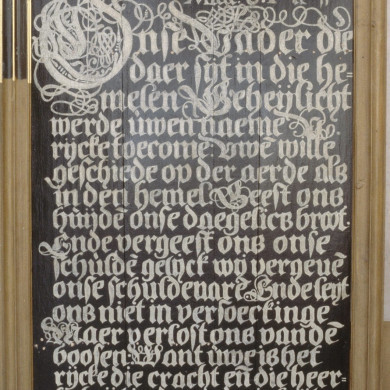 Onse Vader die
daer sijt in die he-
melen Geheylicht
werde uwen naeme V
rijcke toecome Uwe wille
geschiede op der aerde als
in den hemel Geeft ons
huydē onse daegelicx broot.
Ende vergeeft ons onse
schuldē gelijck wy vergeuē
onse schuldenarē Ende leyt
ons niet in versoeckinge
Maer verlost ons vandē
boosen Want uwe is het
rijcke die cracht eñ die heer-